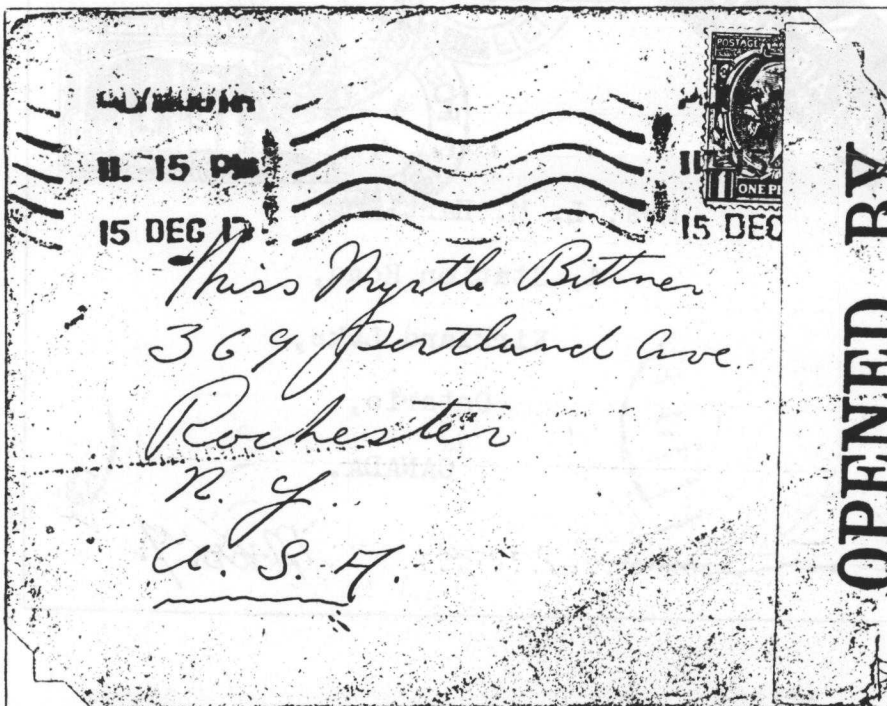 11. 15 PM
15 DEC 17
15 DEC
POSTAGE
1 ONE PE
Miss Myrtle Bittner
369 Portland Ave.
Rochester
N. Y.
U. S. A.
OPENED BY
CANADA